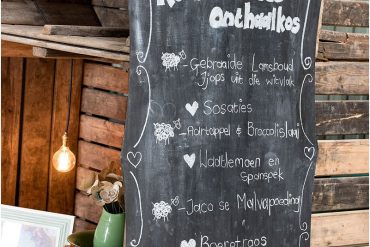 onthaalkos
- Gebraaide Lamsboud
Tjops uit die witvlak
Sosaties
- Aartappel & Broccolislaai
Waatlemoen en
Spanspek
- Jaco se Malvapoeding
Boeretroos